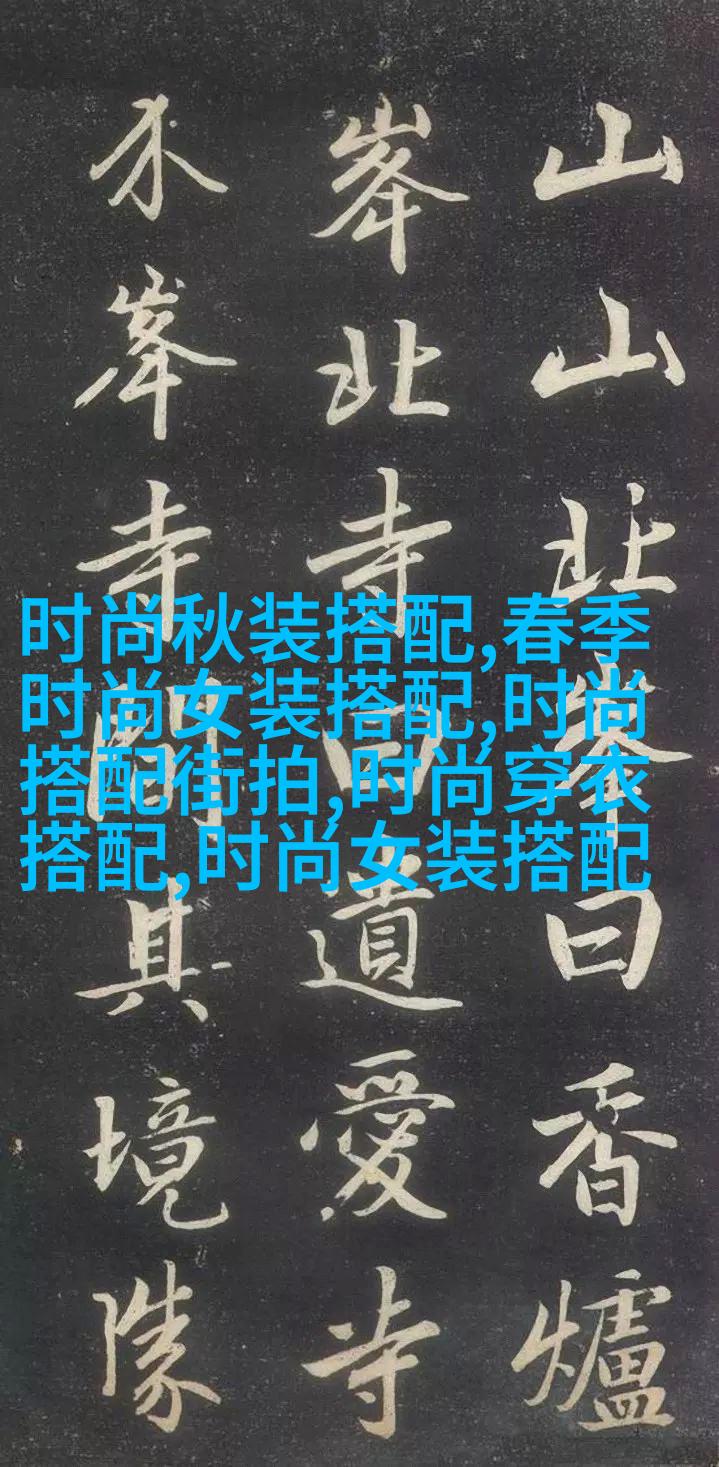 山山北峯曰香爐
峯北寺曰遺愛寺
介峯寺間其境勝
时尚秋装搭配,春季
时尚女装搭配,时尚
搭配街拍,时尚穿衣
搭配,时尚女装搭配